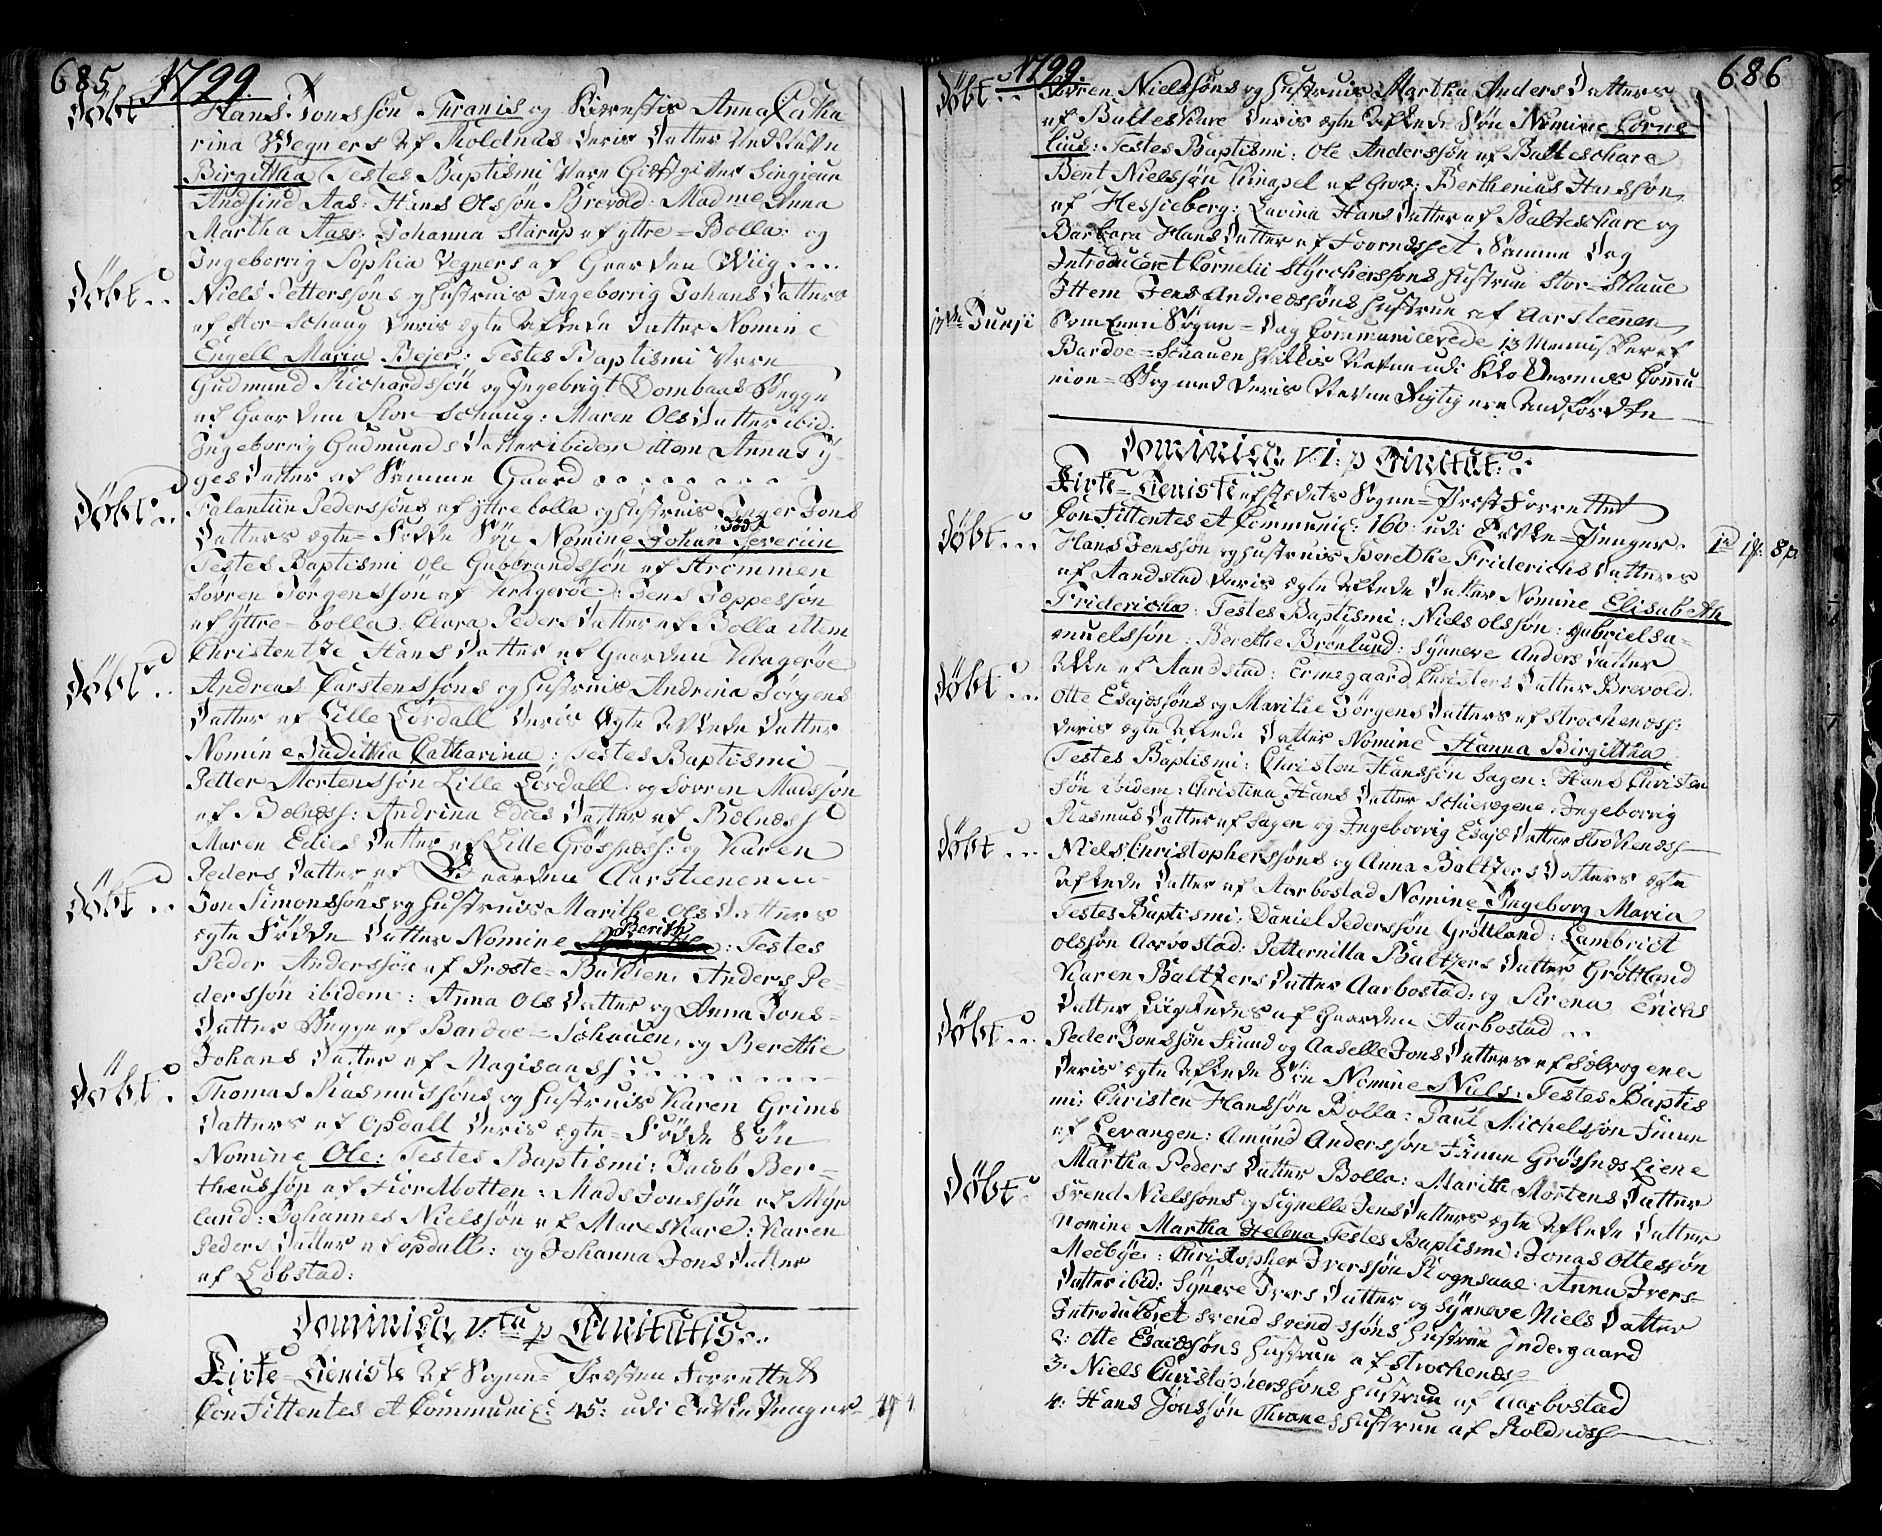 685 1799.
Døbt Hans Jonssøn Thranis og Kiærestis Anna Catha
rina Wegners af Roldnæs deris Datter ved Navn
Birgittha Testes Baptismi vare Giestgiver
Aas: Hans Olssøn Brevold: Madme Anna
Martha Aas: Johanna Stârup af yttre=Bolla: og
Ingeborrig Sophia Wegners af Gaarden Wiig
Døbt Niels Petterssøns og Hustruis Ingeborrig Johans Datters
af Stor=Schaug deris ægte Aflede Datter Nomine
Engell Maria Bejer: Testes Baptismi vare
Gudmund Richardssøn og Ingebrigt Dombaas begge
af Gaarden Stor=Schaug: Maren Ols Datter ibid:
Ingeborrig Gudmunds Datter ibidem ittem Anna Ty-
ges Datter af Samme Gaard
Døbt Falantiin Pederssøns af yttre bolla og Hustruis Inger Jons
Datters ægte=Fødde Søn Nomine Johan Severiin
død
Testes Baptismi Ole Gubbrandssøn af Strømmen
Søvren Jørgenssøn af Kragerøe: Jens Jeppessøn
af yttre=bolla: Clara Peders Datter af Bolla ittem
Christentze Hans Datter af Gaarden Kragerøe
Døbt Andreas Carstenssøns og Hustruis Andrina Jørgens
Datter af Lille Lördall deris Ægte Aflede Datter
Nomine Judittha Catharina: Testes Baptismi
Petter Mortenssøn Lille Lördall: og Sövren Madssøn
af Bælnæss: Andrina Edies Datter af Bælnæss
Maren Edies Datter af Lille Grøssnæss: og Karen
Peders Datter af Gaarden Aarsteenen
Døbt Jon Simonssøns og Hustruis Marithe Ols Datters
ægte Fødde Datter Nomine Berith: Testes
Peder Anderssøn af Præste=Bakken, Anders Pe-
derssøn ibidem: Anna Ols Datter og Anna Jons-
Datter Begge af Bardoe=Schauen, og Berethe
Johans Datter af Magisaass
Døbt Thomas Rasmussøns og Hustruis Karen Grims
Datters af Opdall deris ægte=Fødde Søn
Nomine Ole: Testes Baptismi: Jacob Ber-
theussøn af Fiordbotten: Mads Jonssøn af Myr
land: Johannes Nielssøn af Mareskare: Karen
Peders Datter af opdall: og Johanna Jons Datter
af Løbstad:
Dominica V:ta p Trinitatis
Kirke=Tieniste af Sogne=Præsten Forrettet
Confittentes et Communiq: 45: udi Tavle Penger
1799. 686
Døbt Sövren Nielssøns og Hustruis Martha Anders Datters
af Balteskare deris ægte Aflede Søn Nomine Corne
lius: Testes Baptismi: Ole Anderssøn af Balteschare
Bent Nielssøn Knapel af Grov: Berthenius Hanssøn
af Hessieberg: Lavina Hans Datter af Balteskare og
Barbara Hans Datter af Foornæsset. Samme Dag
Introduceret Cornelii Styrcherssøns Hustrue Stor=Skaue
Ittem Jens Andreassøns Hustrue af Aarsteenen
17de Junji Som Een Søgne=Dag Communicerede 13 Mennisker af
Bardoe=Schauen Commu-
nion=Bog med deris Navne Rigtig ere Andførdte
Dominica VI: p Trinitat:
Kirke=Tieniste af stedets Sogne=Præst Forrettet
Confittentes et Communiq: 160: udi Tavle=Penger. 1d 1f: 8p
Døbt Hans Jenssøn og Hustruis Berethe Friderichs Datters
af Aandstad deris ægte Aflede Datter Nomine Elisabeth
Fridericha: Testes Baptismi: Niels Olssøn: Gabriel Sa-
muelssøn: Berethe Brönlund: Synneve Anders Datter
Alle af Aandstad: Ermegaard Christens Datter Brevold.
Døbt Otte Esajæssøns og Marithe Jörgens Datters af Strochenæss:
deris ægte Aflede Datter Nomine Hanna Birgittha
Testes Baptismi: Christen Hanssøn Sagen: Hans Christen
søn ibidem: Christina Hans Datter Schievegene: Ingeborrig
Rasmus Datter af Sagen og Ingeborrig Esajæ Datter Strokenæss
Døbt Niels Christopherssøns og Anna Baltzers Datters ægte
Aflede Datter af Aarbostad Nomine Ingeborg Maria
Testes Baptismi: Daniel Pederssøn Gröttland: Lambrict
Olssøn Aarbostad: Petternilla Baltzers Datter Gröttland
Karen Baltzers Datter Aarbostad: og Sirena Erichs
Datter Liigeledes af Gaarden Aarbostad
Døbt Peder Jonssøn Fiund og Aaselle Jons Datters af Sælvogene
deris ægte Aflede Søn Nomine Niels: Testes Baptis
mi: Christen Hanssøn Bolla: Paul Michelssøn Finn
af Levangen: Amund Anderssøn Finn Grössnæs Liene
Martha Peders Datter Bolla: Marith Mortens Datter
Døbt Svend Nielssøns og Signelle Jens Datters ægte Aflede Datter
Nomine Martha Helena Testes Baptismi: Jonas Ottessøn
Medbye: Christopher Iverssøn Rognsaae: Anna Ivers-
Datter ibid: Synneve Ivers Datter og Synneve Niels Datter
Introduceret Svend Svendssøns Hustrue Indergaard
2: Otte Esaiæssøns Hustrue af Strochenæs
3: Niels Christopherssøns Hustrue af Aarbostad
4: Hans Jönssøn Thrones Hustrue af Roldnæss